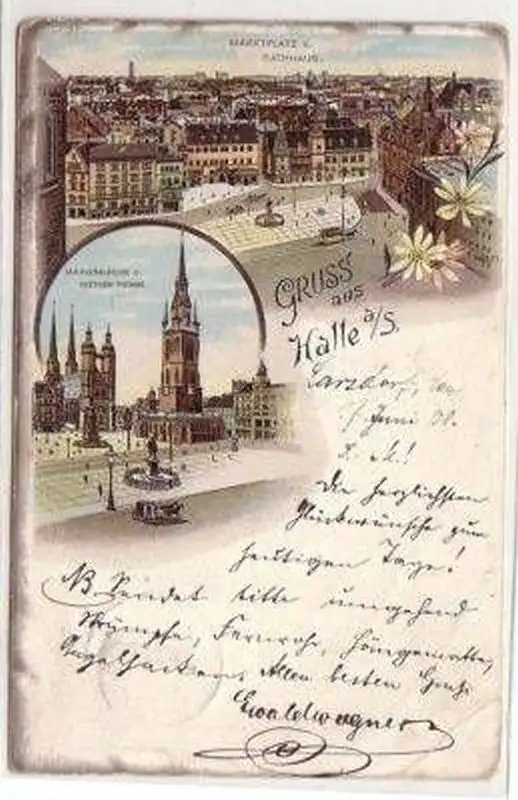 MARKTPLATZ U.
RATHHAUS.
MARIENKIRCHE U.
ROTHER THURM.
Gruss
aus
Halle a/S.
Juni
Die herzlichsten
Glückwünsche zum
heutigen Tage!
NB Sendet bitte umgehend
Strümpfe, Fernrohr, Hängematte,
Allen besten Gruß
Ewald Wagner